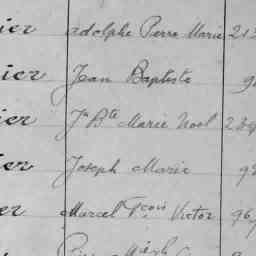 ier adolphe Pierre Marie 213
ier Jean Baptiste 9
ier Jn Bte Marie Noel 239
er Joseph Marie 99
er Marcel Fçois Victor 96